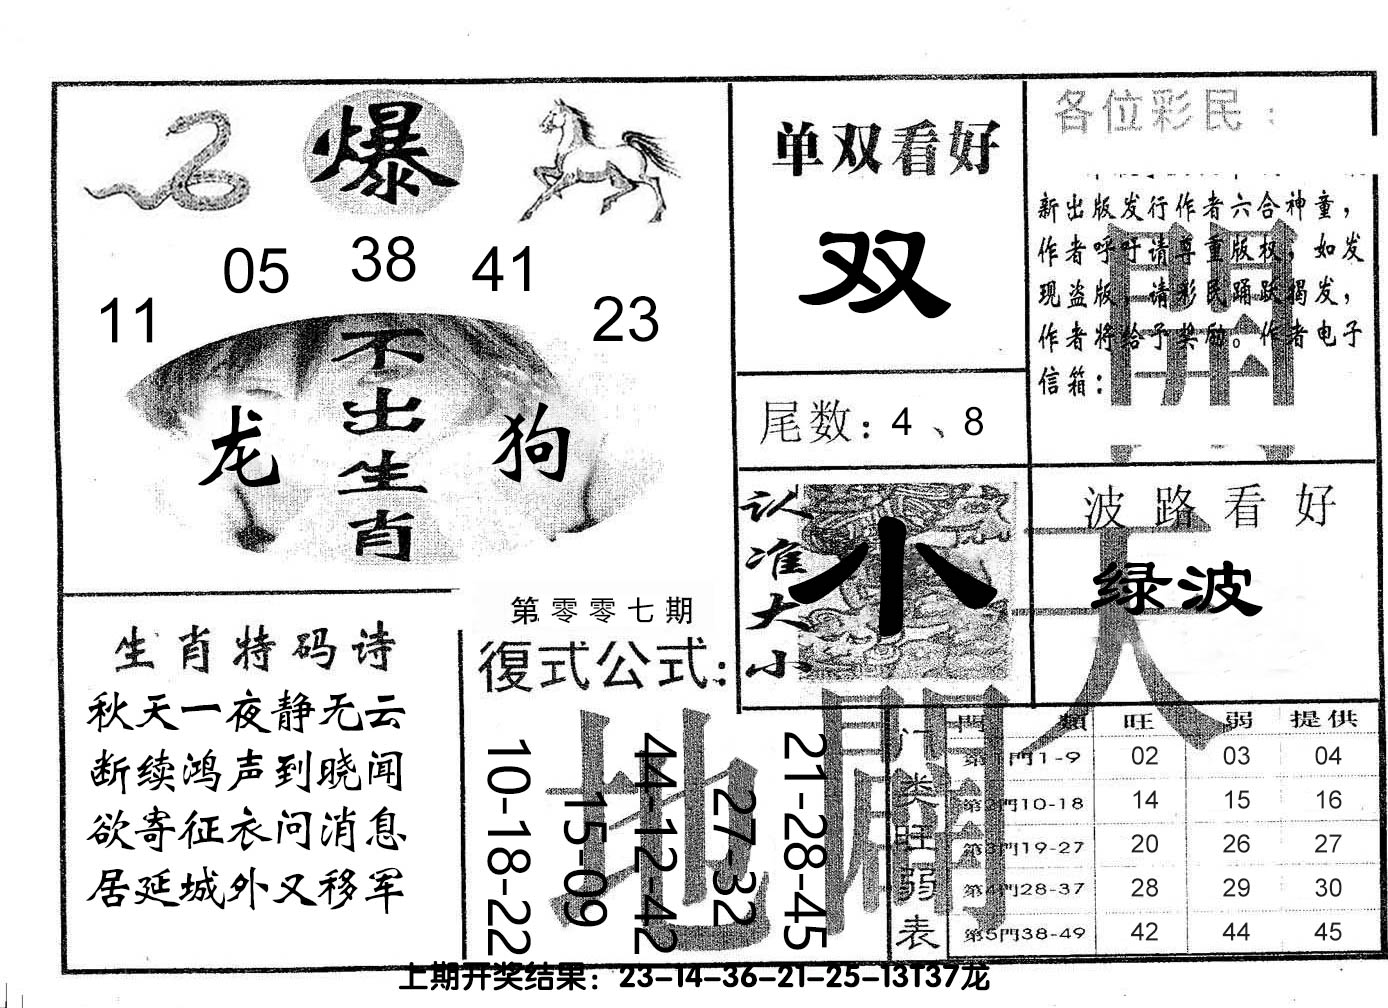 爆
05 38 41
11 23
不出生肖
龙 狗
单双看好
双
尾数：4、8
各位彩民：
新出版发行作者六合神童，
作者呼吁请尊重版权，如发
现盗版，请彩民踊跃揭发，
作者将给予奖励。作者电子
信箱：
開
认准大小
小
波路看好
绿波
天
生肖特码诗
秋天一夜静无云
断续鸿声到晓闻
欲寄征衣问消息
居延城外又移军
第零零七期
復式公式：
10-18-22
15-09
44-12-42
27-32
21-28-45
地
門类旺弱表
門類 旺 弱 提供
第1門1-9 02 03 04
第2門10-18 14 15 16
第3門19-27 20 26 27
第4門28-37 28 29 30
第5門38-49 42 44 45
上期开奖结果：23-14-36-21-25-13T37龙